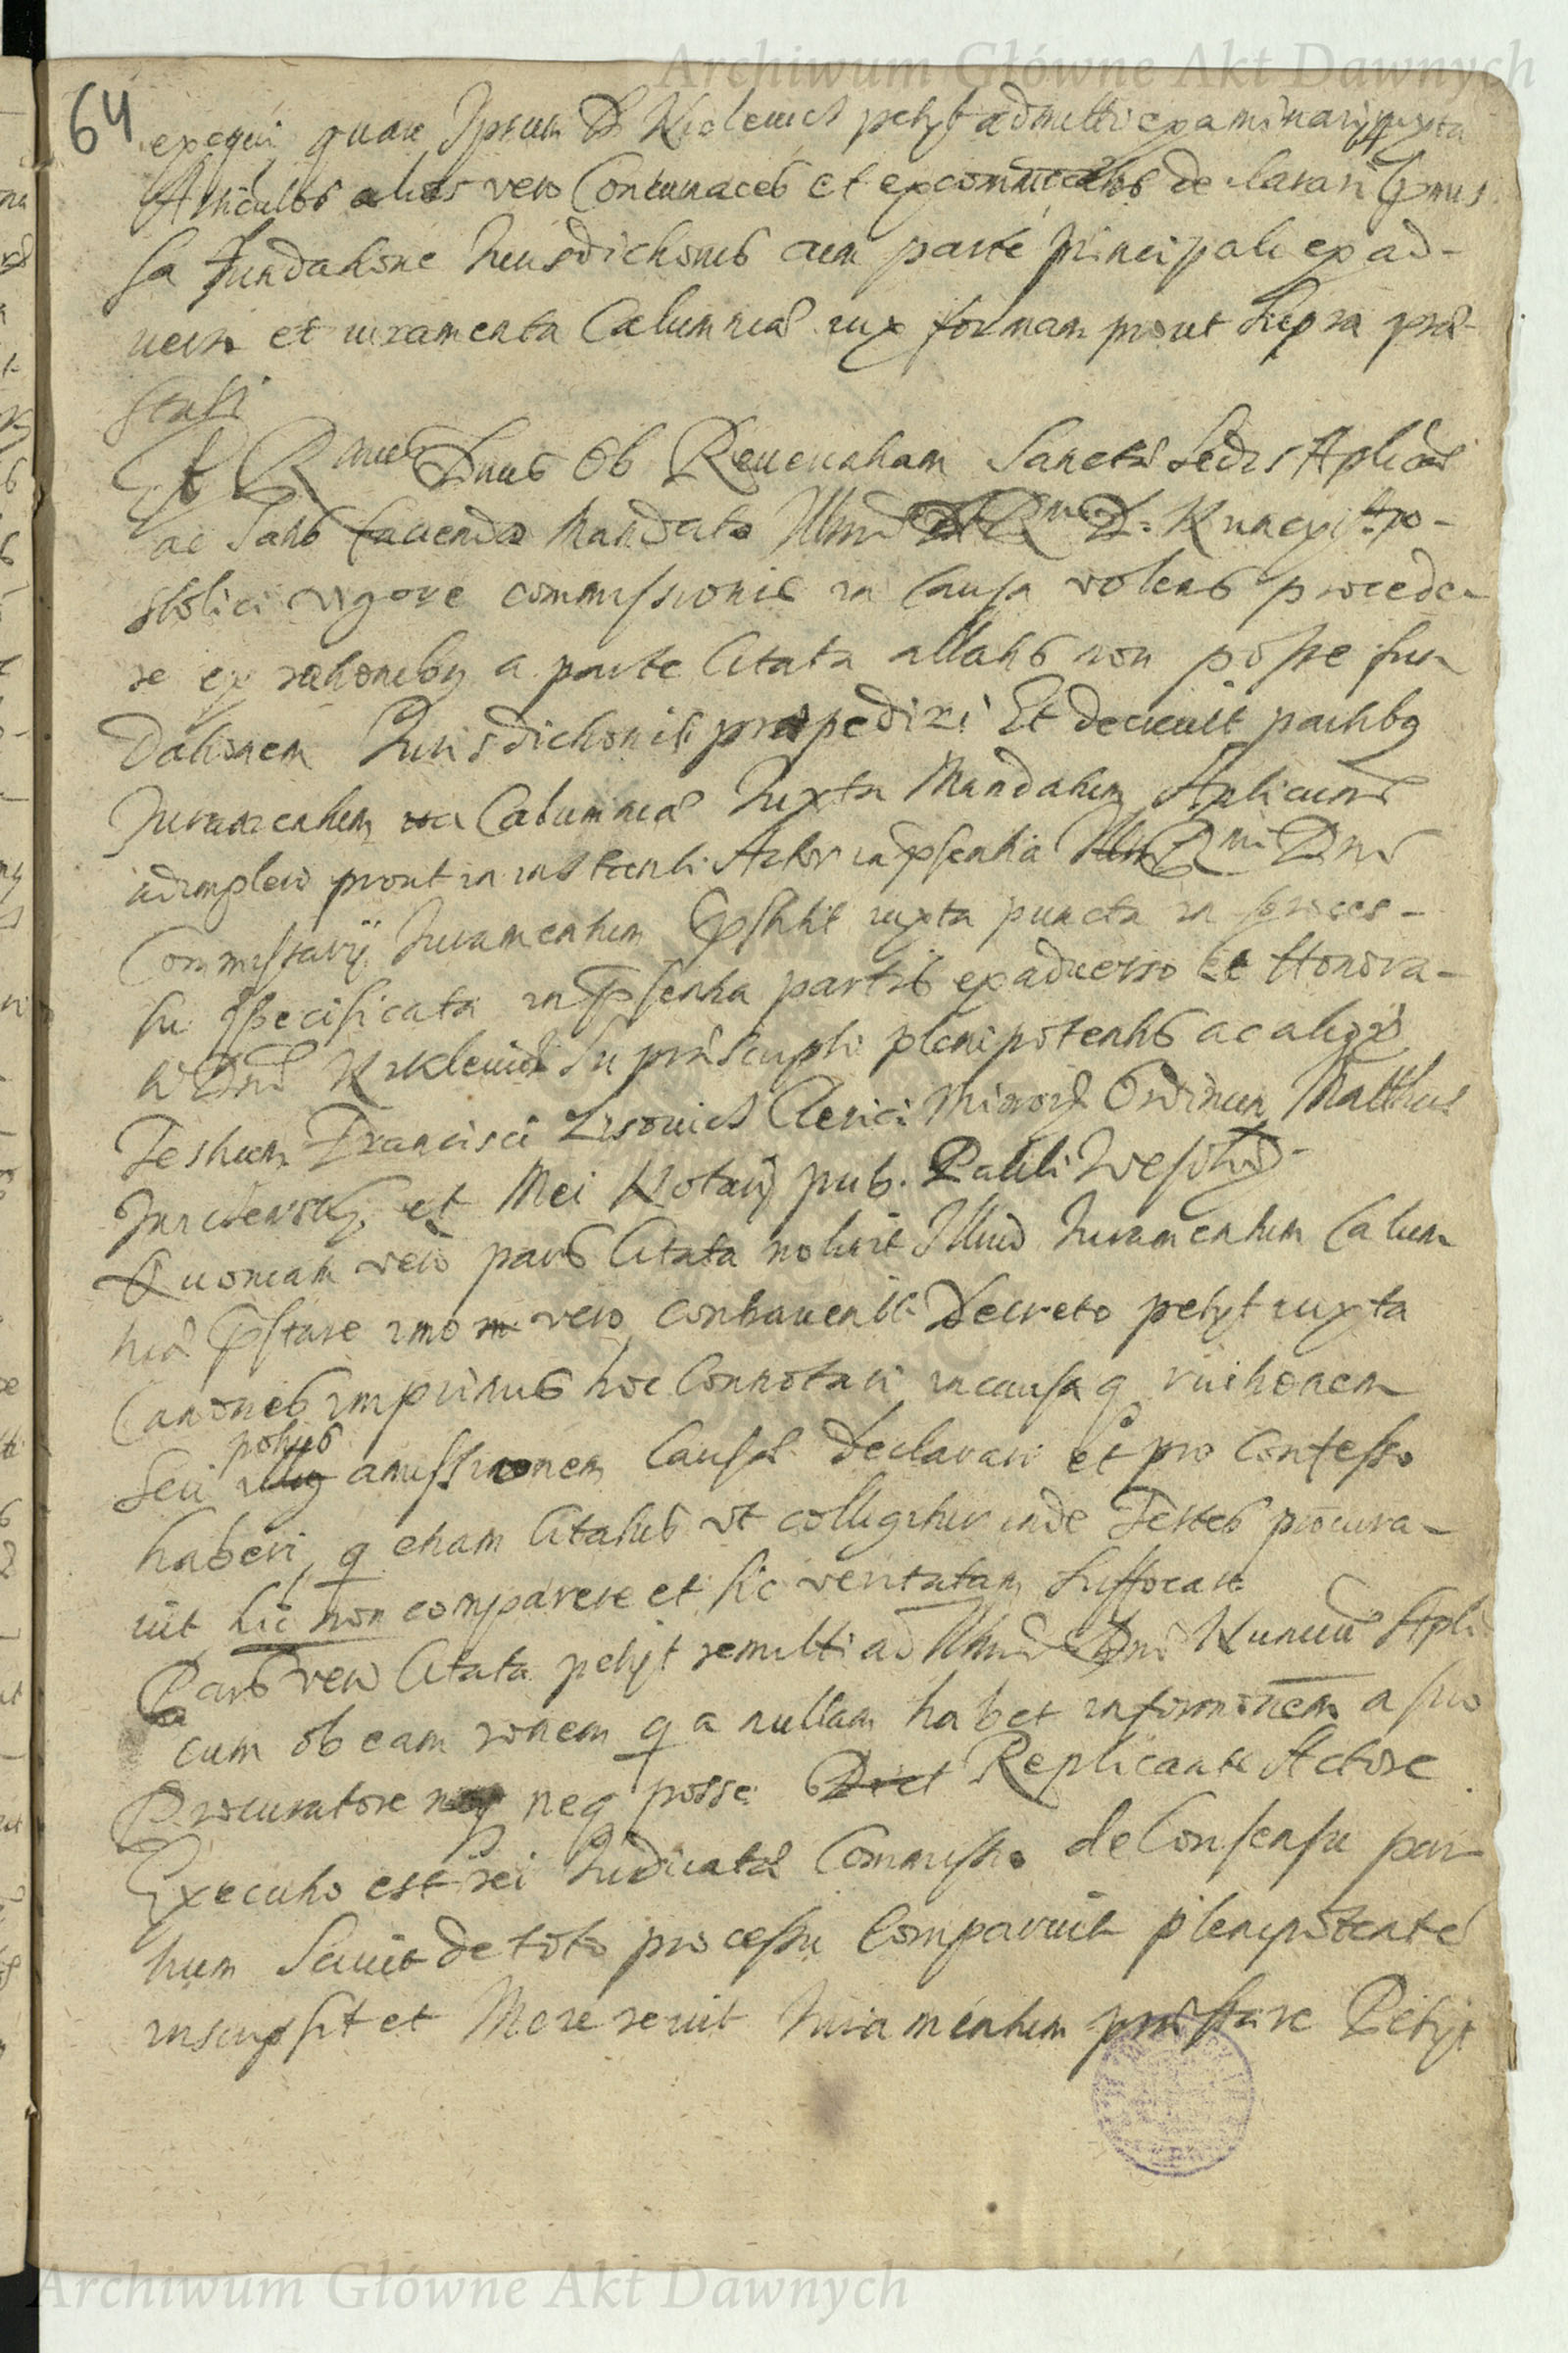 Archiwum Główne Akt Dawnych
64
exequi quare Ipsum D Kiolewicz petyt admitti examinari juxta
Articulos alios vero Contumaces et excommunicatos declarari Prmis
sa fundatione Iurisdictionis cum parte principali ex ad-
uerso et iuramenta Calumniæ iux formam prout Supra præ-
stasi
Et Rmus Dnus Ob Reuerentiam Sanctæ Sedis Aplicæ
ac Satis faciendo Mandato Illmi Rmi D. Nuncyi Apo-
stolici vigore commissionis in Causa volens procede-
re ex rationibus a parte Citata allatis non posse fun
dationem Iurisdictionis præpediri Et decreuit partibus
Iuramentum Calumniæ Iuxta Mandatum Aplicum
adimplere prout in instanti Actor in pñtia Rmi Dni
Commissarij Iuramentum pstitit iuxta puncta in proces-
su specificata in psentia partis ex aduerso Et Honora-
ti Dni Suprascripti plenipotentis ac aliorum
Testium Francisci Lisowicz Clerici Minorum Ordinum Matthiæ
et Mei Notarij pub. Pauli
Quoniam vero pars Citata noluit Illud Iuramentum Calum
niæ pstare imo vero contrauenit Decreto petyt iuxta
Canones imprimis hoc Connotari in causa q
potius
Seu amissionem Causæ declarari et pro Confesso
haberi, q etiam Citatus vt colligitur inde Testes procura-
uit hic non comparere et sic veritatem Suffocare
Pars vero Citata petyt remitti ad Illmu Dnu Nunciu Apli
cum ob eam ronem q a nullam habet informonem a suo
Procuratore neq posse Replicante Actore
Executio est rei Iudicatæ Commissio de Consensu par
tium Sciuit de toto processu Comparuit plenipotente
inscripsit et Iuramentum præstare Petyt
Archiwum Główne Akt Dawnych